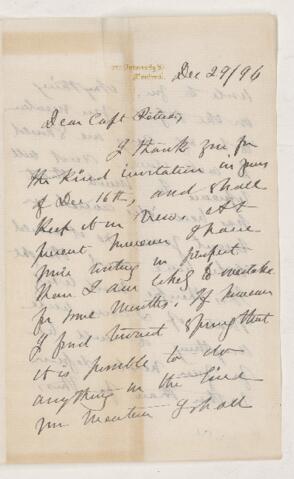 University St
Montreal.
Dec 29/96
Dear Capt
I thank you for
the kind invitation in yours
of Dec 16th, and shall
keep it in view. At
present however I have
more writing in prospect
than I am likely to overtake
for some months. If however
I find toward spring that
it is possible to do
anything in the line
you mention I shall